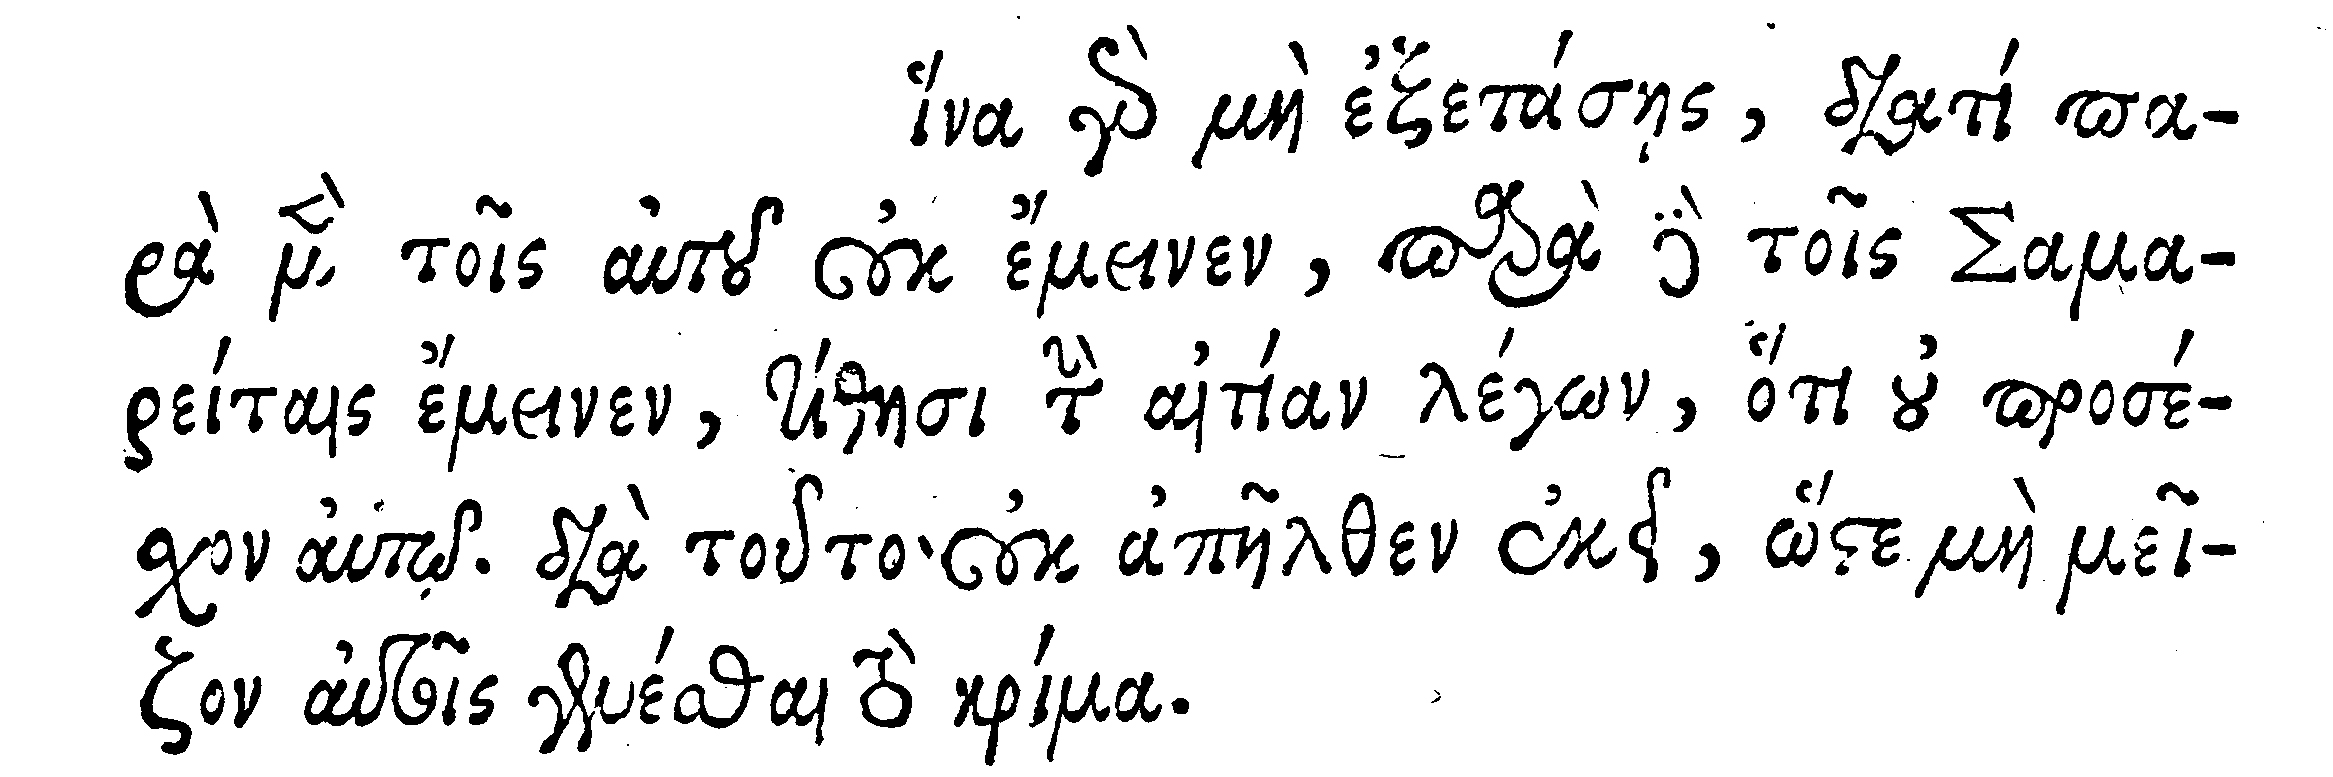 ἵνα γὰρ μὴ ἐξετάσῃς, διατί πα-
ρὰ μὲν τοῖς αὐτοῦ οὐκ ἔμεινεν, παρὰ δὲ τοῖς Σαμα-
ρείταις ἔμεινεν, τίθησι τὴν αἰτίαν λέγων, ὅτι οὐ προσέ-
χον αὐτῷ. διὰ τοῦτο οὐκ ἀπῆλθεν ἐκεῖ, ὥστε μὴ μεῖ-
ζον αὐτοῖς γενέσθαι τὸ κρίμα.